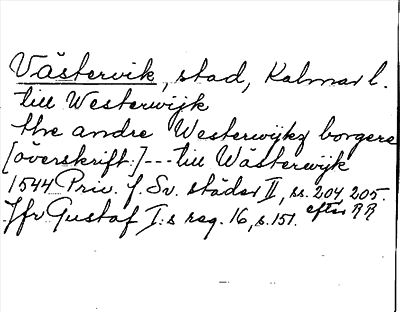 Västervik, stad, Kalmar l.
till Westerwijk
the andre Westerwijkz borgere
[överskrift:] --- till Wästerwijk
1544 Priv. f. Sv. städer II, ss. 204, 205.
Jfr Gustaf I:s reg. 16, s. 151. efter RR